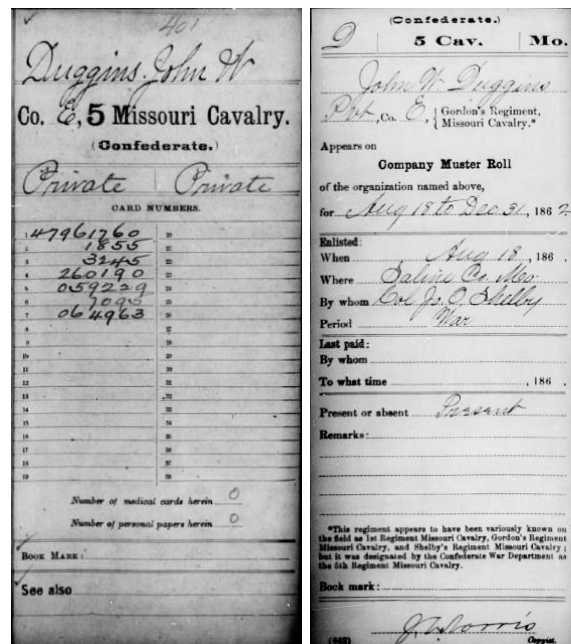 401
Duggins, John W
Co. E, 5 Missouri Cavalry.
(Confederate.)
Private Private
CARD NUMBERS.
1 47961760 20
2 1855 21
3 3245 22
4 260190 23
5 059229 24
6 7095 25
7 064963 26
8 27
9 28
10 29
11 30
12 31
13 32
14 33
15 34
16 35
17 36
18 37
19 38
Number of medical cards herein 0
Number of personal papers herein 0
BOOK MARK:
See also
(Confederate.)
D 5 Cav. Mo.
John W. Duggins
Pvt, Co. E, Gordon's Regiment,
Missouri Cavalry.*
Appears on
Company Muster Roll
of the organization named above,
for Aug 18 to Dec 31, 1862.
Enlisted:
When Aug 18, 186 .
Where Saline Co Mo.
By whom Col Jo. O. Shelby
Period War
Last paid:
By whom
To what time , 186 .
Present or absent Present
Remarks:
*This regiment appears to have been variously known on
the field as 1st Regiment Missouri Cavalry, Gordon's Regiment
Missouri Cavalry, and Shelby's Regiment Missouri Cavalry;
but it was designated by the Confederate War Department as
the 5th Regiment Missouri Cavalry.
Book mark:
Norris
(642) Copyist.